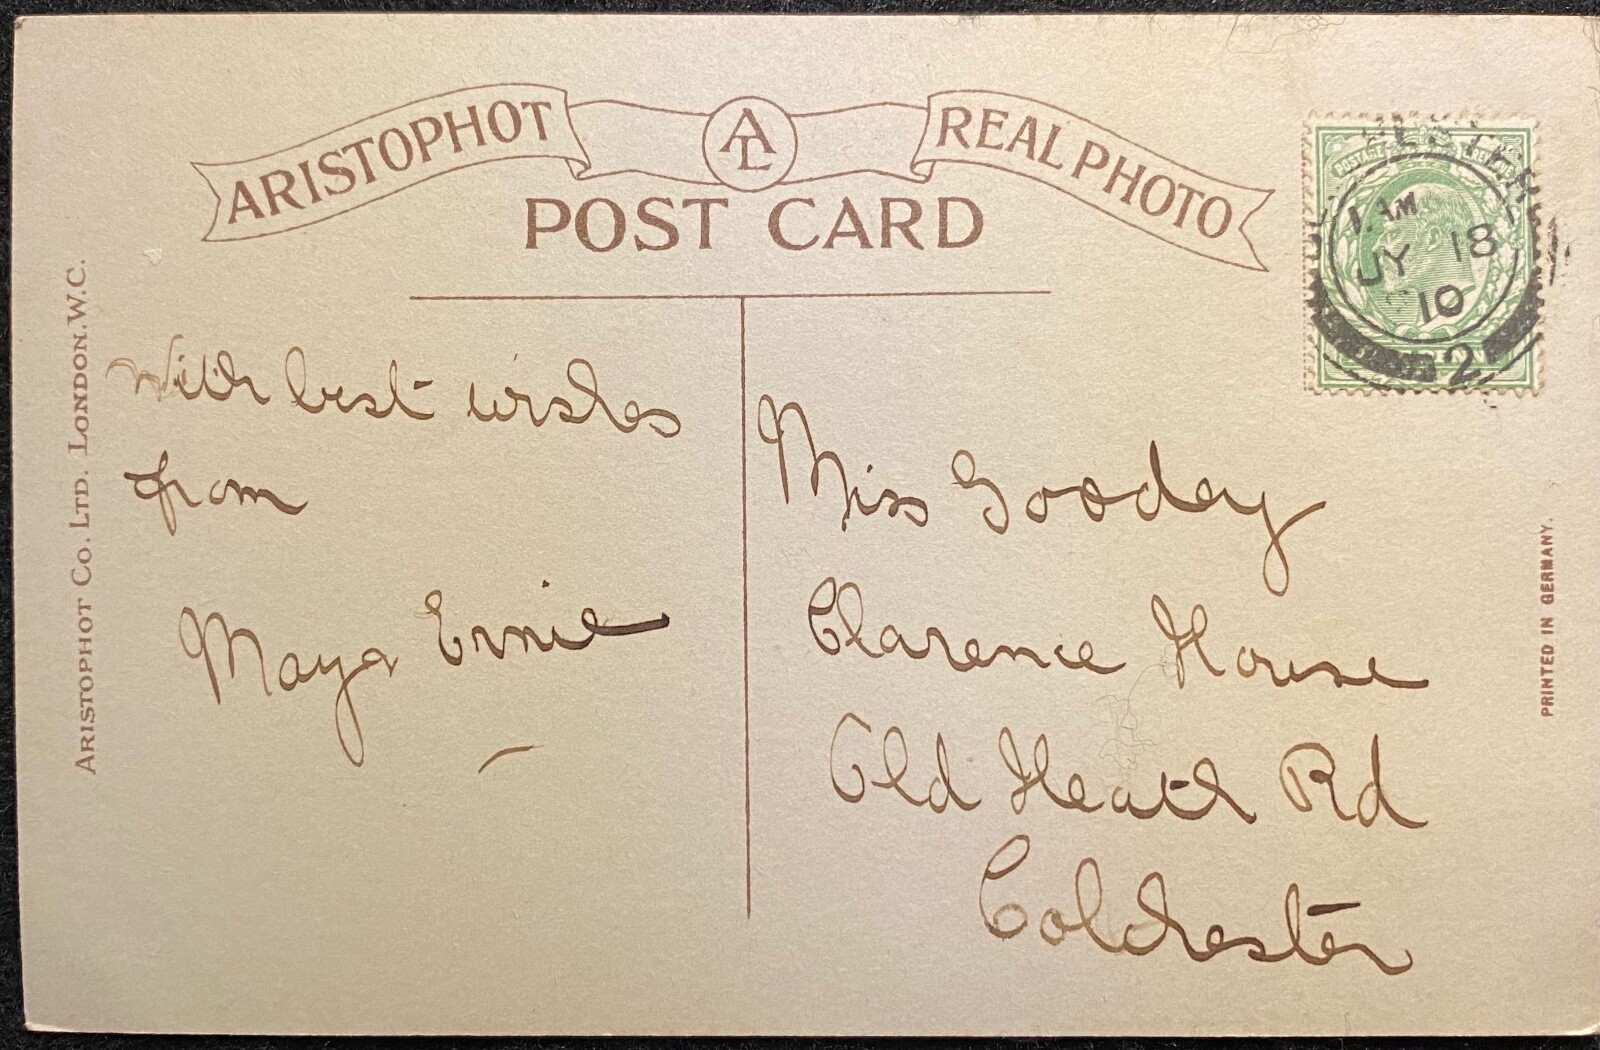 ARISTOPHOT
AL
REAL PHOTO
POST CARD
ARISTOPHOT CO. LTD. LONDON. W.C.
With best wishes
from
Maya Ernie
Miss Gooday
Clarence House
Old Heath Rd
Colchester
POSTAGE
1 AM
JY 18
10
2
PRINTED IN GERMANY.